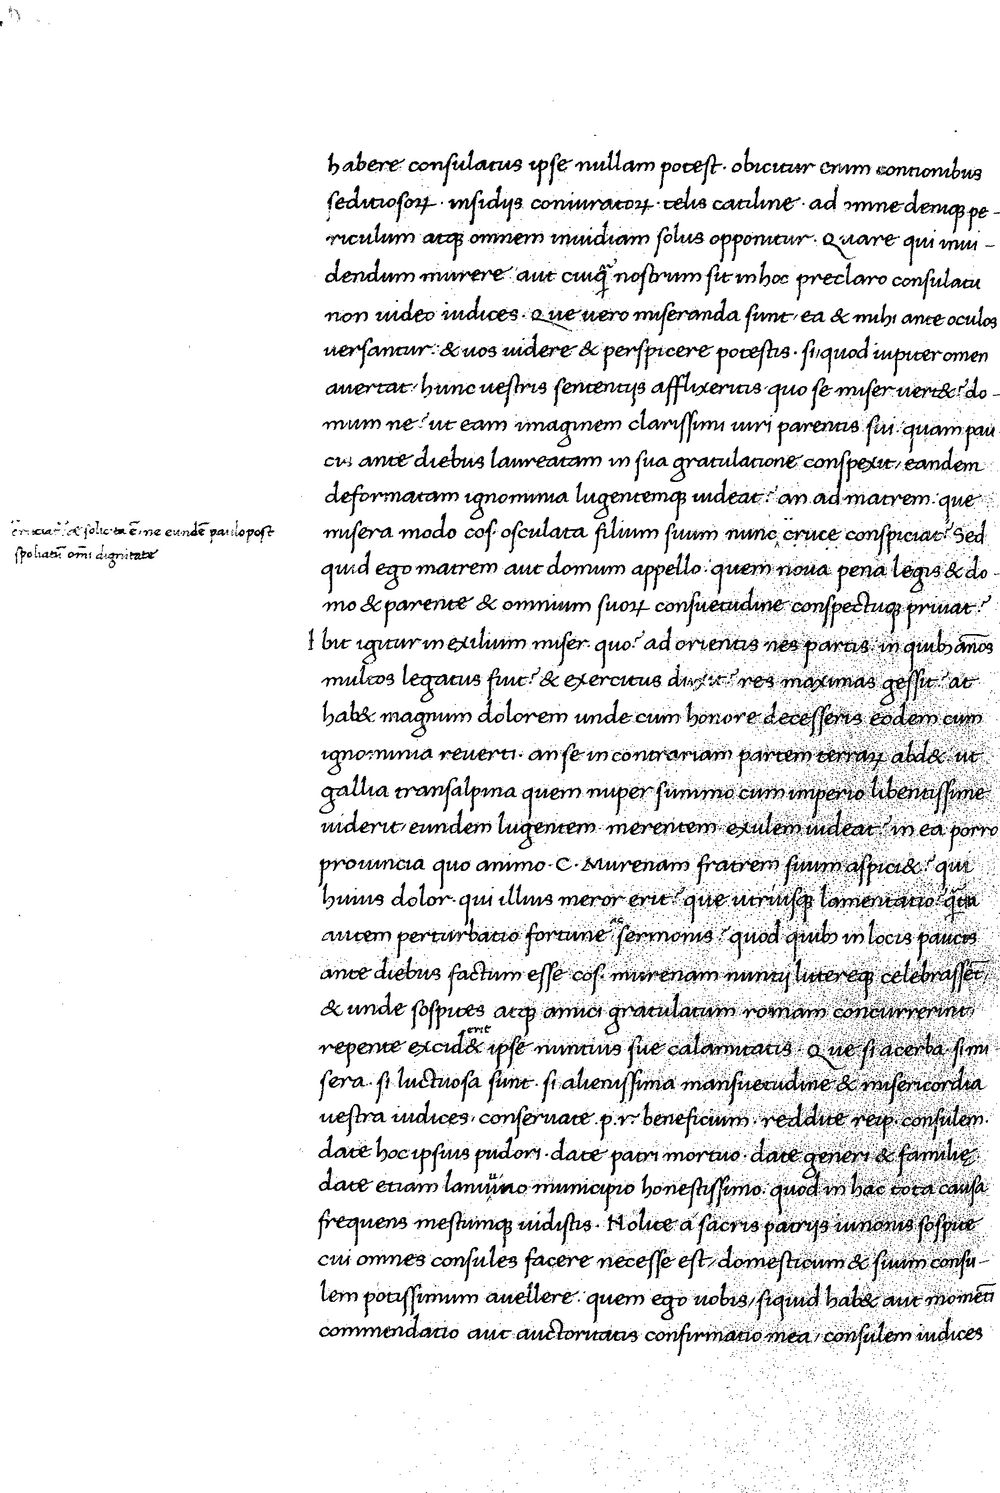 habere consulatus ipse nullam potest. obicitur enim contionibus
seditiosoꝝ. insidijs coniuratoꝝ. telis catiline. ad omne deniqꝫ pe-
riculum atqꝫ omnem inuidiam solus opponitur. Quare qui inui-
dendum murere aut cuiqᷓ nostrum sit in hoc preclaro consulatu
non uideo iudices. Que uero miseranda sunt, ea & mihi ante oculos
uersantur. & uos uidere & perspicere potestis. si, quod iupiter omen
auertat, hunc uestris sententijs afflixeritis quo se miser uert&? do-
mum ne? ut eam imaginem clarissimi uiri parentis sui quam pau
cis ante diebus laureatam in sua gratulatione conspexit, eandem
deformatam ignominia lugentemqꝫ uideat? an ad matrem. que
misera modo cos. osculata filium suum nunc cruce conspiciat? Sed
cruciat̃ & solicita ẽ. ne eundẽ paulo post
spoliatũ omĩ dignitate
quid ego matrem aut domum appello. quem noua pena legis & do-
mo & parente & omnium suoꝝ consuetudine conspectuqꝫ priuat?
Ibit igitur in exilium miser. quo? ad orientis nes partis. in quibꝫ annos
multos legatus fuit? & exercitus duxit? res maximas gessit? at
hab& magnum dolorem unde cum honore decesseris eodem cum
ignominia reuerti. an se in contrariam partem terraꝝ abd& ut
gallia transalpina quem nuper summo cum imperio libentissime
uiderit, eundem lugentem merentem exulem uideat? in ea porro
prouincia quo animo. C. Murenam fratrem suum aspici&? qui
huius dolor. qui illius meror erit? que utriusqꝫ lamentatio? qᷓta
autem perturbatio fortune qᷓ sermonis? quod quibꝫ in locis paucis
ante diebus factum esse cos. murenam nuntij litereqꝫ celebrassẽt,
& unde sospites atqꝫ amici gratulatum romam concurrerint,
repente excid& erit ipse nuntius sue calamitatis. Que si acerba. si mi
sera. si luctuosa sunt. si alienissima mansuetudine & misericordia
uestra iudices, conseruate .p.r. beneficium. reddite reip. consulem.
date hoc ipsius pudori. date patri mortuo. date generi & familię.
date etiam lanuuino municipio honestissimo. quod in hac tota causa
frequens mestumqꝫ uidistis. Nolite a sacris patrijs iunonis sospite
cui omnes consules facere necesse est, domesticum & suum consu-
lem potissimum auellere. quem ego uobis, siquid hab& aut momẽti
commendatio aut auctoritatis confirmatio mea, consulem iudices